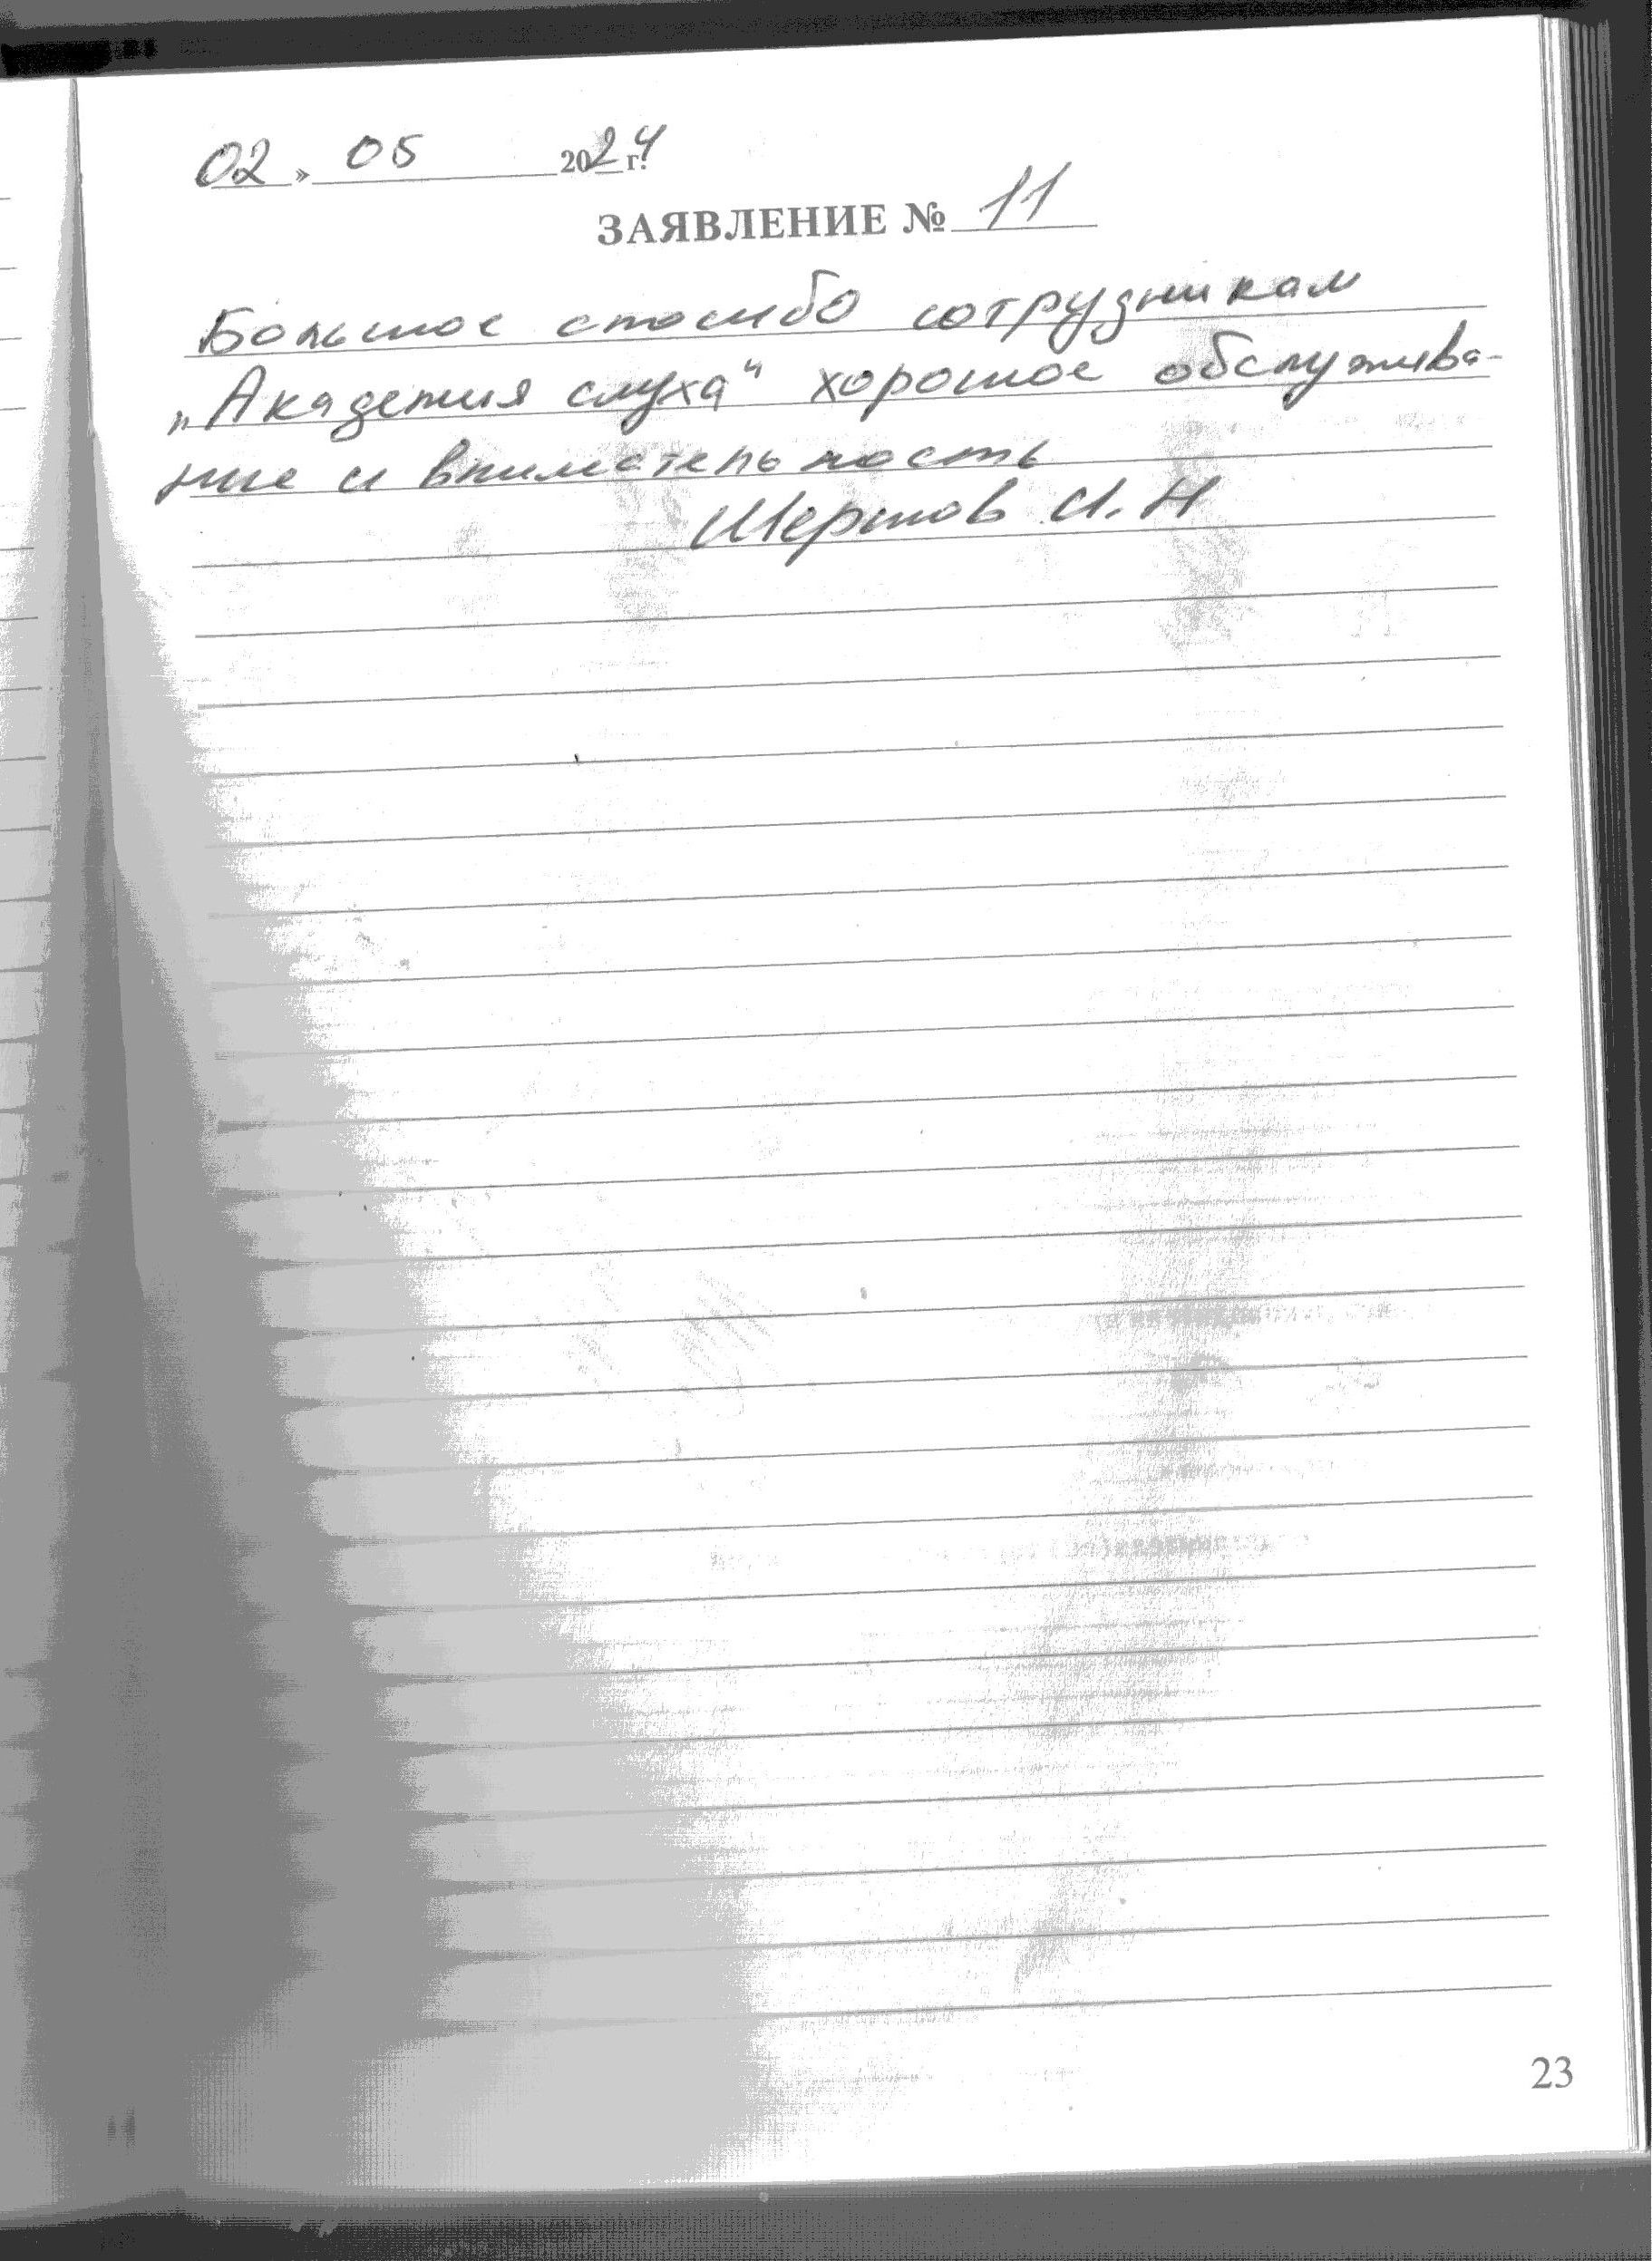 02 » 05 2024 г.
ЗАЯВЛЕНИЕ № 11
Большое спасибо сотрудникам
„Академия слуха" хорошое обслужива-
ние и внимательность
И.Н
23